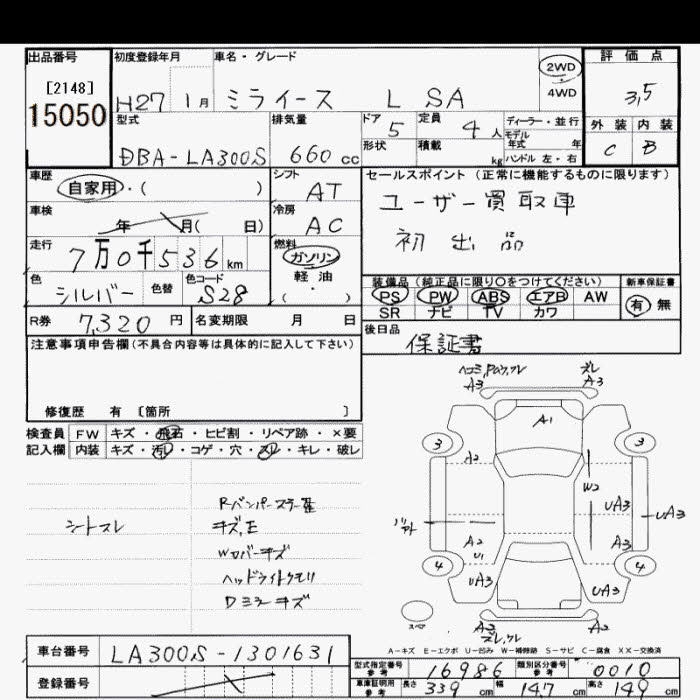 出品番号
[2148]
15050
初度登録年月
H27 1月
車名・グレード
ミライース L SA
2WD
・
4WD
評価点
3,5
外装 内装
C B
型式
DBA-LA300S
排気量
660 cc
ドア
5
定員
4 人
形状
積載
kg
ディーラー・並行
モデル
年式 年
ハンドル 左・右
車歴
自家用・( )
シフト
AT
車検
年 月( 日)
冷房
AC
走行
7万0千536 km
燃料
ガソリン
軽油
・
( )
色
シルバー
色替
色コード
S28
R券
7,320 円
名変期限 月 日
セールスポイント(正常に機能するものに限ります)
ユーザー買取車
初出品
装備品(純正品に限り○をつけてください)
PS PW ABS エアB AW
SR ナビ TV カワ
新車保証書
有 無
後日品
保証書
注意事項申告欄(不具合内容等は具体的に記入して下さい)
修復歴 有 〔箇所 〕
検査員
記入欄
FW キズ・飛石・ヒビ割・リペア跡・×要
内装 キズ・汚レ・コゲ・穴・スレ・キレ・破レ
シートスレ
キズ,E
Wカバーキズ
ヘッドライトクモリ
Dミラーキズ
A3
ズレ
A3
A1
3
3
A2
W2
UA3
UA3
A2
U1
A3
4
4
UA3
UA3
A2
A2
スペア
A-キズ E-エクボ U-凹み W-補修跡 S-サビ C-腐食 XX-交換済
車台番号
LA300S-1301631
登録番号
型式指定番号
参考
16986
類別区分番号
参考
0010
車庫証明用
参考
長さ 339 cm
幅 147 cm
高さ 149 cm